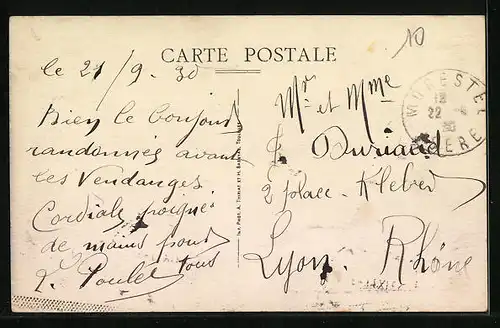 10
CARTE POSTALE
le 21/9-30
Bien le bonjour
randonnée avant
les Vendanges.
Cordiale poignée
de mains pour
tous
Poulet
Mr et Mme
Durand
2 place Kleber
Lyon. Rhône
MORESTEL
22
30
ISERE